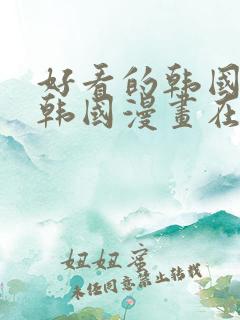 好看的韩国
韩國漫畫在
妞妞蜜
未经同意禁止转载